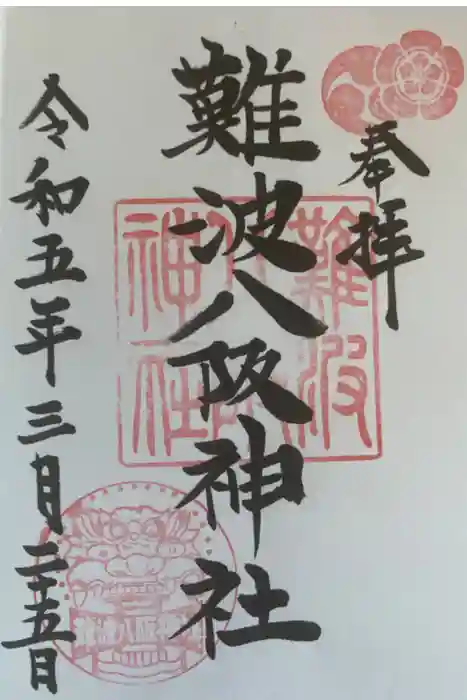 奉拝
難波八阪神社
令和五年三月二十五日
難波八阪神社
難波八阪神社